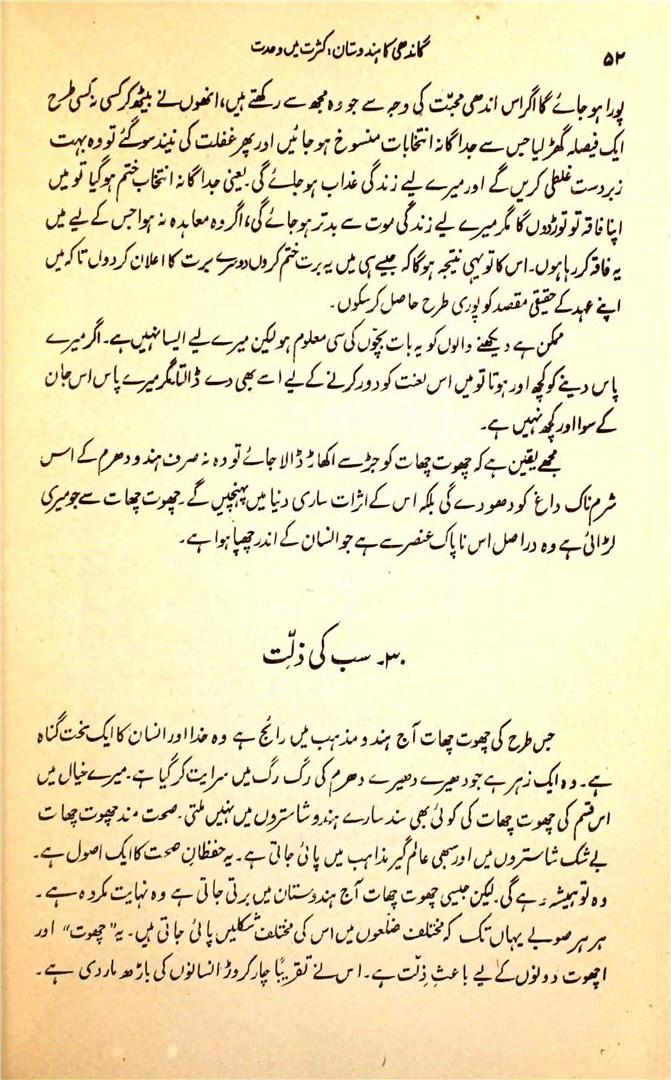 ۵۲
گاندھی کا ہندوستان: کثرت میں وحدت
پورا ہو جائے گا اگر اس اندھی محبّت کی وجہ سے جو وہ مجھ سے رکھتے ہیں، انھوں نے بیٹھ کر کسی نہ کسی طرح
ایک فیصلہ گھڑ لیا جس سے جداگانہ انتخابات منسوخ ہو جائیں اور پھر غفلت کی نیند سو گئے تو وہ بہت
زبردست غلطی کریں گے اور میرے لیے زندگی عذاب ہو جائے گی۔ یعنی جداگانہ انتخاب ختم ہو گیا تو میں
اپنا فاقہ تو توڑ دوں گا مگر میرے لیے زندگی موت سے بدتر ہو جائے گی، اگر وہ معاہدہ نہ ہوا جس کے لیے میں
یہ فاقہ کر رہا ہوں۔ اس کا تو یہی نتیجہ ہوگا کہ جیسے ہی میں یہ برت ختم کروں دوسرے برت کا اعلان کر دوں تاکہ میں
اپنے عہد کے حقیقی مقصد کو پوری طرح حاصل کر سکوں۔
ممکن ہے دیکھنے والوں کو یہ بات بچّوں کی سی معلوم ہو لیکن میرے لیے ایسا نہیں ہے۔ اگر میرے
پاس دینے کو کچھ اور ہوتا تو میں اس لعنت کو دور کرنے کے لیے اسے بھی دے ڈالتا، مگر میرے پاس اس جان
کے سوا اور کچھ نہیں ہے۔
مجھے یقین ہے کہ چھوت چھات کو جڑ سے اکھاڑ ڈالا جائے تو وہ نہ صرف ہندو دھرم کے اس
شرم ناک داغ کو دھو دے گی بلکہ اس کے اثرات ساری دنیا میں پہنچیں گے۔ چھوت چھات سے جو میری
لڑائی ہے وہ دراصل اس ناپاک عنصر سے ہے جو انسان کے اندر چھپا ہوا ہے۔
۳۰۔ سب کی ذلّت
جس طرح کی چھوت چھات آج ہندو مذہب میں رائج ہے وہ خدا اور انسان کا ایک سخت گناہ
ہے۔ وہ ایک زہر ہے جو دھیرے دھیرے دھرم کی رگ رگ میں سرایت کر گیا ہے۔ میرے خیال میں
اس قسم کی چھوت چھات کی کوئی بھی سند سارے ہندو شاستروں میں نہیں ملتی۔ صحت مند چھوت چھات
بے شک شاستروں میں اور سبھی عالم گیر مذاہب میں پائی جاتی ہے۔ یہ حفظانِ صحت کا ایک اصول ہے۔
وہ تو ہمیشہ رہے گی۔ لیکن جیسی چھوت چھات آج ہندوستان میں برتی جاتی ہے وہ نہایت مکروہ ہے۔
ہر ہر صوبے یہاں تک کہ مختلف ضلعوں میں اس کی مختلف شکلیں پائی جاتی ہیں۔ یہ "چھوت" اور
اچھوت دونوں کے لیے باعثِ ذلّت ہے۔ اس نے تقریباً چار کروڑ انسانوں کی باڑھ مار دی ہے۔